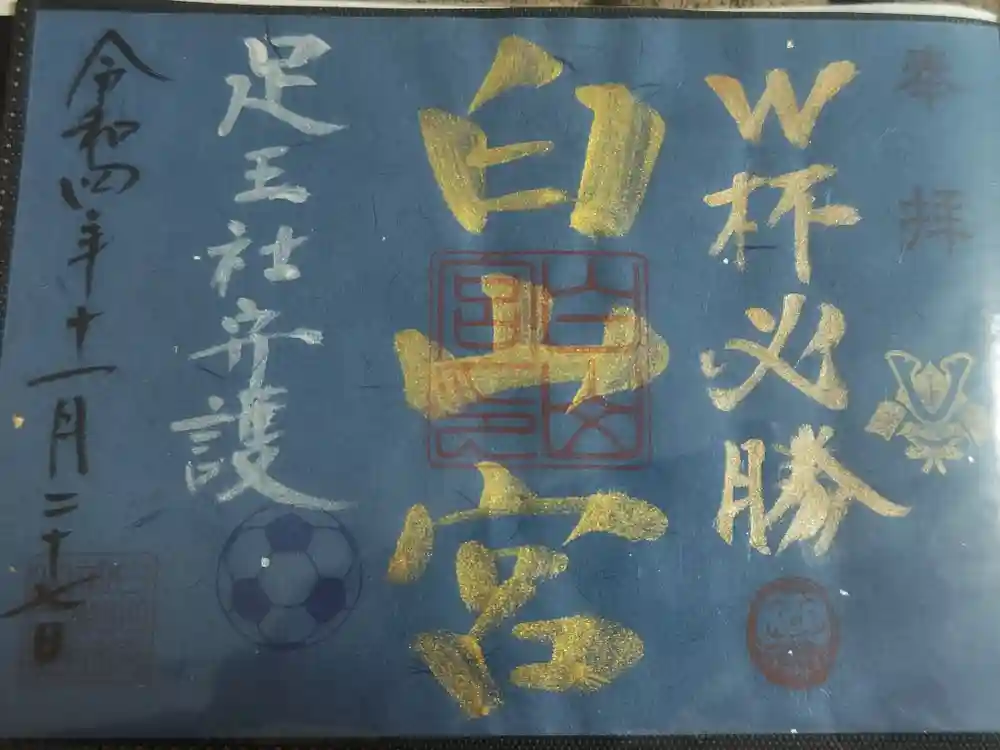 奉拝
W杯必勝
白山宮
足王社守護
令和四年十一月二十七日